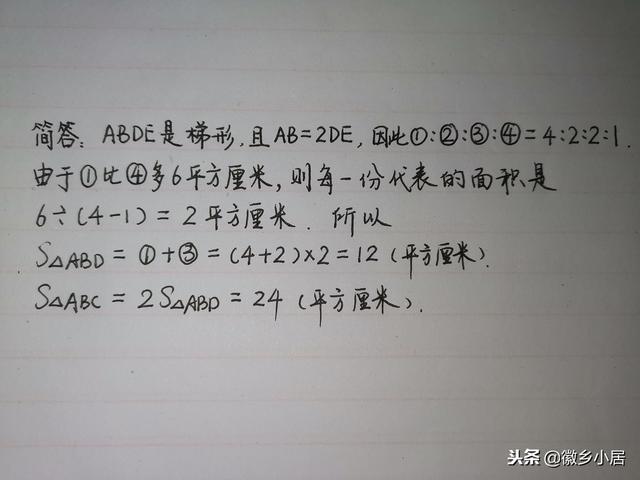 简答：ABDE是梯形，且AB=2DE，因此①:②:③:④=4:2:2:1.
由于①比④多6平方厘米，则每一份代表的面积是
6÷(4-1)=2平方厘米．所以
S△ABD=①+③=(4+2)×2=12（平方厘米）.
S△ABC=2S△ABD=24（平方厘米）.
头条@徽乡小居